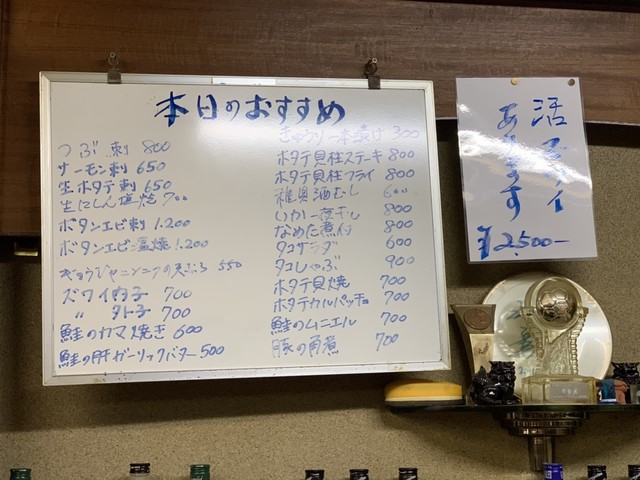 本日のおすすめ
つぶ刺 800
サーモン刺 650
生ホタテ刺 650
生にしん塩焼 700
ボタンエビ刺 1.200
ボタンエビ塩焼 1.200
ギョウジャニンニクの天ぷら 550
ズワイ内子 700
〃 外子 700
鮭のカマ焼き 600
鮭の肝ガーリックバター 500
きゅうり一本漬け 300
ホタテ貝柱ステーキ 800
ホタテ貝柱フライ 800
稚貝酒むし 600
いか一夜干し 800
なめた煮付 800
タコサラダ 600
タコしゃぶ 900
ホタテ貝焼 700
ホタテカルパッチョ 700
鮭のムニエル 700
豚の角煮 700
活ズワイ
あります
¥2,500-